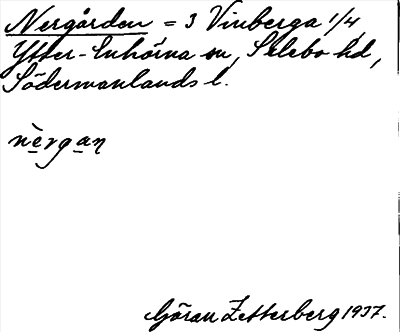 Nergården = 3 Vinberga 1/4
Ytter-Enhörna sn, Selebo hd,
Södermanlands l.
nèrgan
Göran Zetterberg 1937.